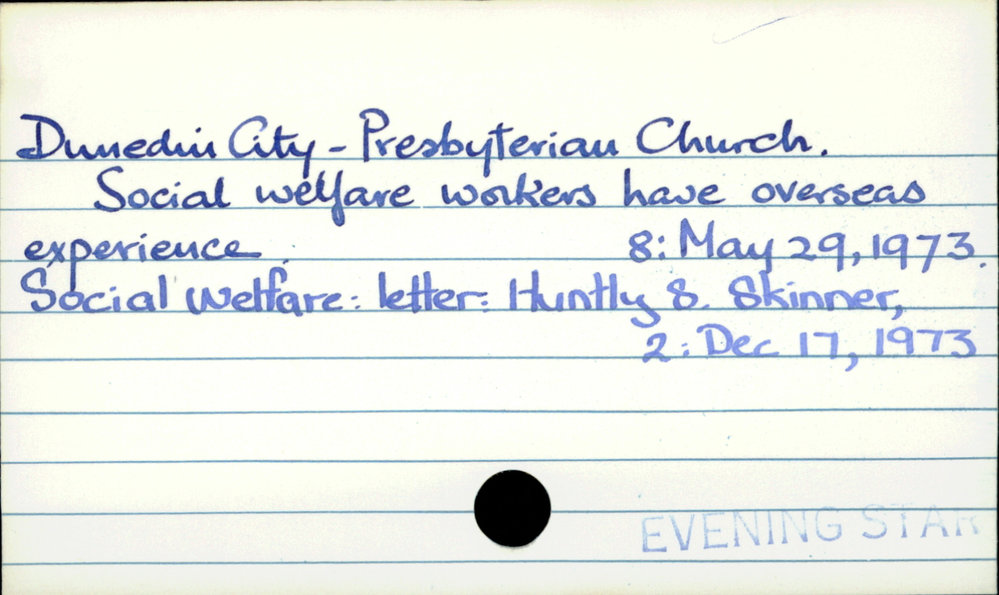 Dunedin City - Presbyterian Church.
Social welfare workers have overseas
experience. 8: May 29, 1973.
Social Welfare: letter: Huntly S. Skinner,
2: Dec 17, 1973
EVENING STAR